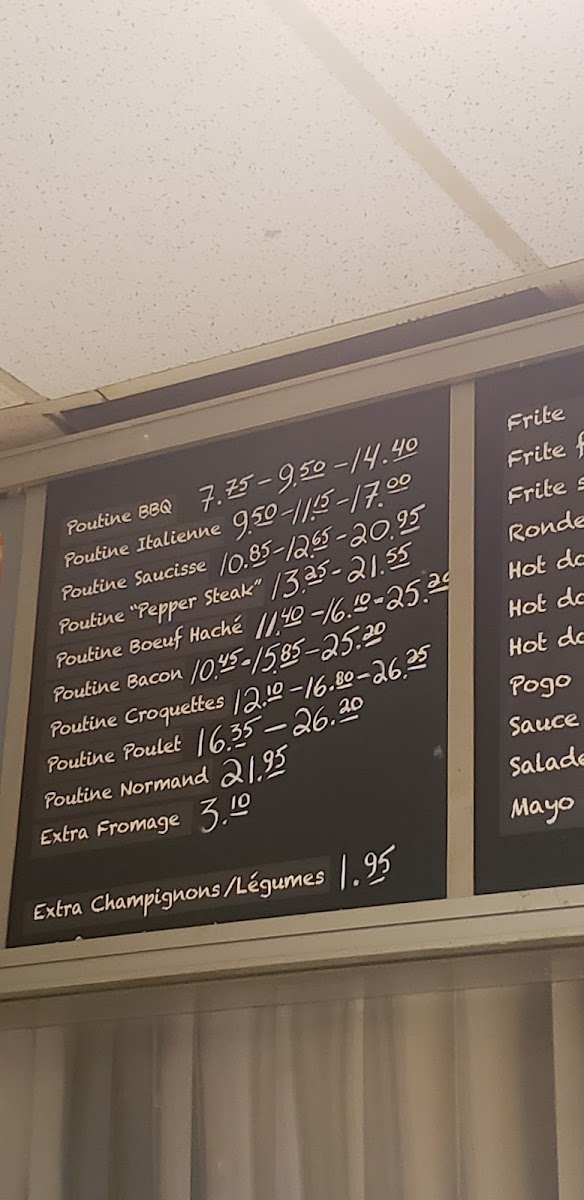 Poutine BBQ 7.75 - 9.50 - 14.40
Poutine Italienne 9.50 - 11.15 - 17.00
Poutine Saucisse 10.85 - 12.65 - 20.95
Poutine "Pepper Steak" 13.25 - 21.55
Poutine Boeuf Haché 11.40 - 16.10 - 25.20
Poutine Bacon 10.45 - 15.85 - 25.20
Poutine Croquettes 12.10 - 16.80 - 26.25
Poutine Poulet 16.35 - 26.20
Poutine Normand 21.95
Extra Fromage 3.10
Extra Champignons/Légumes 1.95
Frite
Frite
Frite
Hot
Hot
Hot
Pogo
Sauce
Salade
Mayo